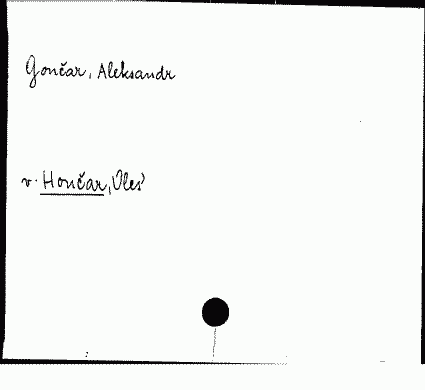 Gončar, Aleksandr
v. Hončar, Oleś